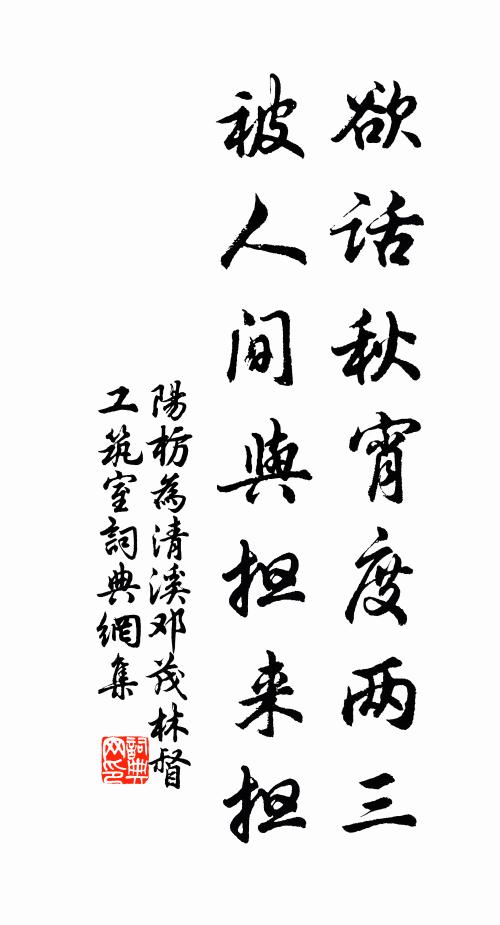 欲话秋宵度两三
被人间与担来担
陽枥為清溪邓茂林督
工筑室詞典網集
詞典網印